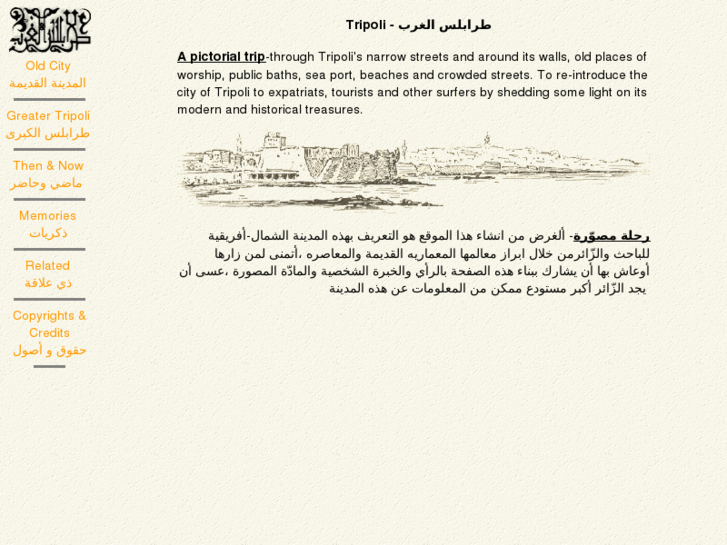 Old City
المدينة القديمة
Greater Tripoli
طرابلس الكبرى
Then & Now
ماضي وحاضر
Memories
ذكريات
Related
ذي علاقة
Copyrights &
Credits
حقوق و أصول
Tripoli - طرابلس الغرب
A pictorial trip-through Tripoli's narrow streets and around its walls, old places of
worship, public baths, sea port, beaches and crowded streets. To re-introduce the
city of Tripoli to expatriats, tourists and other surfers by shedding some light on its
modern and historical treasures.
رحلة مصوّرة- ألغرض من انشاء هذا الموقع هو التعريف بهذه المدينة الشمال-أفريقية
للباحث والزّائرمن خلال ابراز معالمها المعماريه القديمة والمعاصره ،أتمنى لمن زارها
أوعاش بها أن يشارك ببناء هذه الصفحة بالرأي والخبرة الشخصية والمادّة المصورة ،عسى أن
يجد الزّائر أكبر مستودع ممكن من المعلومات عن هذه المدينة